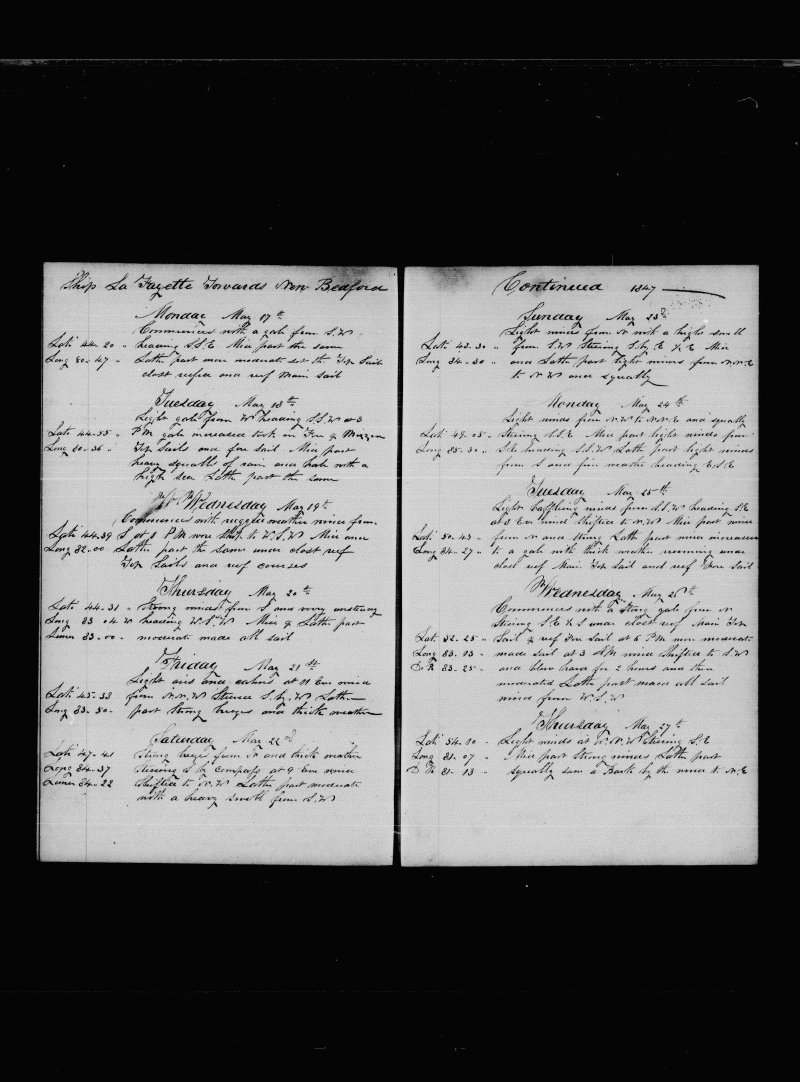 Ship La Fayette Towards New Bedford
Monday May 17th
Commences with a gale from S.W.
Lati 44-20 " heading S.S.E Mid part the same
Long 80-47 " Latter part more moderate set the Top Sails
close reefed and reef Main Sail
Tuesday May 18th
Light gale from W heading S.S.W at 3
Lati 44-55 " P.M gale increased took in Fore & Mizzen
Long 80-36 " Top Sails and fore sail Mid part
heavy squalls of rain and hail with a
high sea Latter part the same
Wednesday May 19th
Commences with rugged weather wind from
Lati 44-39 S at 1 P.M wore Ship to W.S.W Mid and
Long 82-00 Latter part the same under close reef
Top Sails and reef courses
Thursday May 20th
Lati 44-31 " Strong winds from S and very unsteady
Long 83 04 W heading W.S.W Mid & Latter part
Lunar 83-00 " moderate made all sail
Friday May 21st
Light airs and calms at 11 Eve wind
Lati 45-38 from N.N.W Steered S.by.W Latter
Long 83-50 " part strong breezes and thick weather
Saturday May 22nd
Lati 47-41 Strong breeze from N and thick weather
Long 84-37 steering S by compass at 9 Eve wind
Lunar 84-22 Shifted to N.W Latter part moderate
with a heavy swell from S.W
Continued 1847
Sunday May 23d
Light winds from N with a hight swell
Lati 43-30 " from S.W Steering S.by.E & E Mid
Long 84-30 " and Latter part light winds from N.N.E
to N.W and squally
Monday May 24th
Light winds from N.W to N.N.E and squally
Lati 49-05 " Steering S.S.E Mid part light winds from
Long 85-30 " S.E heading S.S.W Latter part light winds
from S and fine weather heading E.S.E
Tuesday May 25th
Light baffling winds from S.S.W heading S.E
at 8 Eve wind Shifted to N.W Mid part wind
Lati 50-43 " from N and strong Latter part wind increased
Long 84-27 " to a gale with thick weather running under
close reef Main Top sail and reef Fore Sail
Wednesday May 26th
Commences with a Strong gale from N
Steering S.E & S under close reef Main Top
Lat 52-25 " Sail & reef Fore Sail at 6 P.M more moderate
Long 83-03 " made sail at 3 A.M wind Shifted to S.W
D R 83-25 " and blew hard for 2 hours and then
moderated Latter part made all sail
wind from W.S.W
Thursday May 27th
Lati 54-10 " Light winds at W.N.W Steering S.E
Long 81-07 " Mid part Strong winds Latter part
D R 81-13 " squally saw a Bark by the wind to N.E